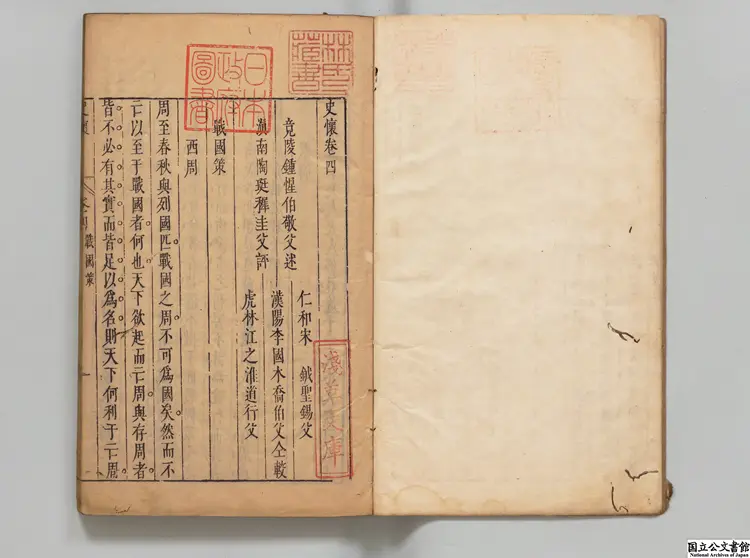 史懷卷四
竟陵鍾惺伯敬父述
滇南陶珽穉圭父評
仁和宋 鍼聖錫父
漢陽李國木喬伯父仝較
虎林江之淮道行父
戰國策
西周
周至春秋與列國匹戰國之周不可爲國矣然而不
亡以至于戰國者何也天下欲起而亡周與存周者
皆不必有其實而皆足以爲名則天下何利于亡周
卷四 戰國策 一
林氏藏書
日本政府圖書
淺草文庫
国立公文書館
National Archives of Japan